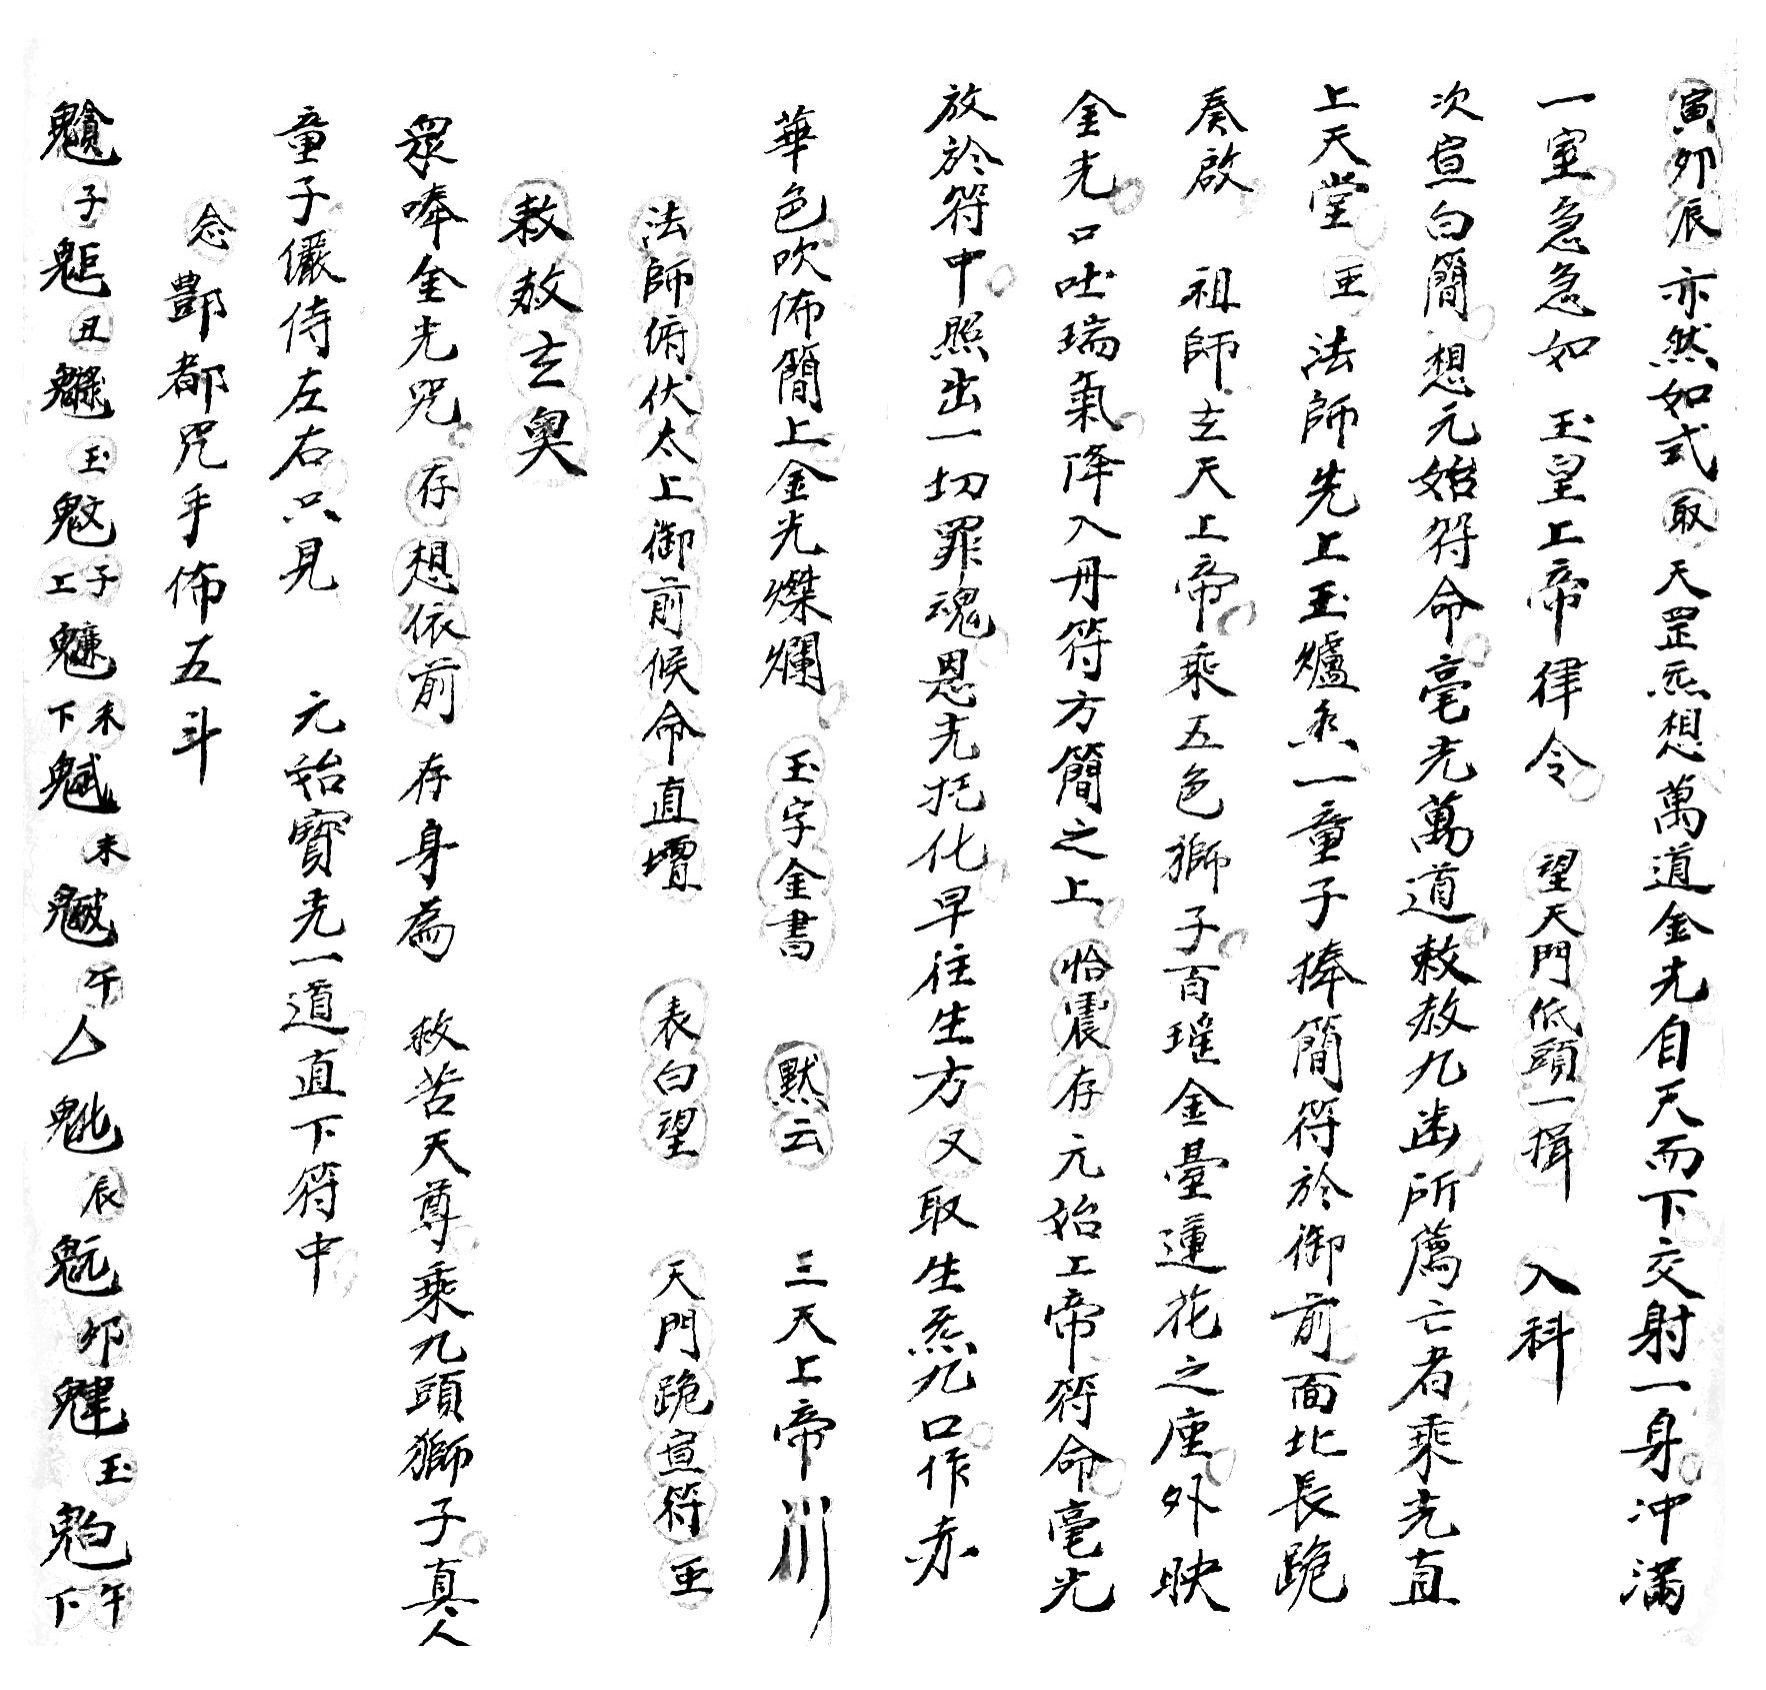 寅卯辰亦然如式取天罡炁想萬道金光自天而下交射一身冲滿
一室急急如玉皇上帝律令望天門低頭一揖入科
次宣白簡想元始符命毫光萬道敕赦九幽所薦亡者乘光直
上天堂至法師先上玉爐烝一童子捧簡符於御前面北長跪
奏啟祖師玄天上帝乘五色獅子百瑤金臺蓮花之座外映
金光口吐瑞氣降入丹符方簡之上恰震存元始上帝符命毫光
放於符中照出一切罪魂恩光托化早往生方又取生炁九口作赤
華色吹佈簡上金光燦爛玉字金書默云三天上帝川
法師俯伏太上御前候命直壇表白望天門跪宣符至
敕赦玄奥
眾唪金光咒存想依前存身為救苦天尊乘九頭獅子真人
童子儼侍左右只見元始寶光一道直下符中
念酆都咒手佈五斗
子丑玉子上未下未午辰卯玉午下